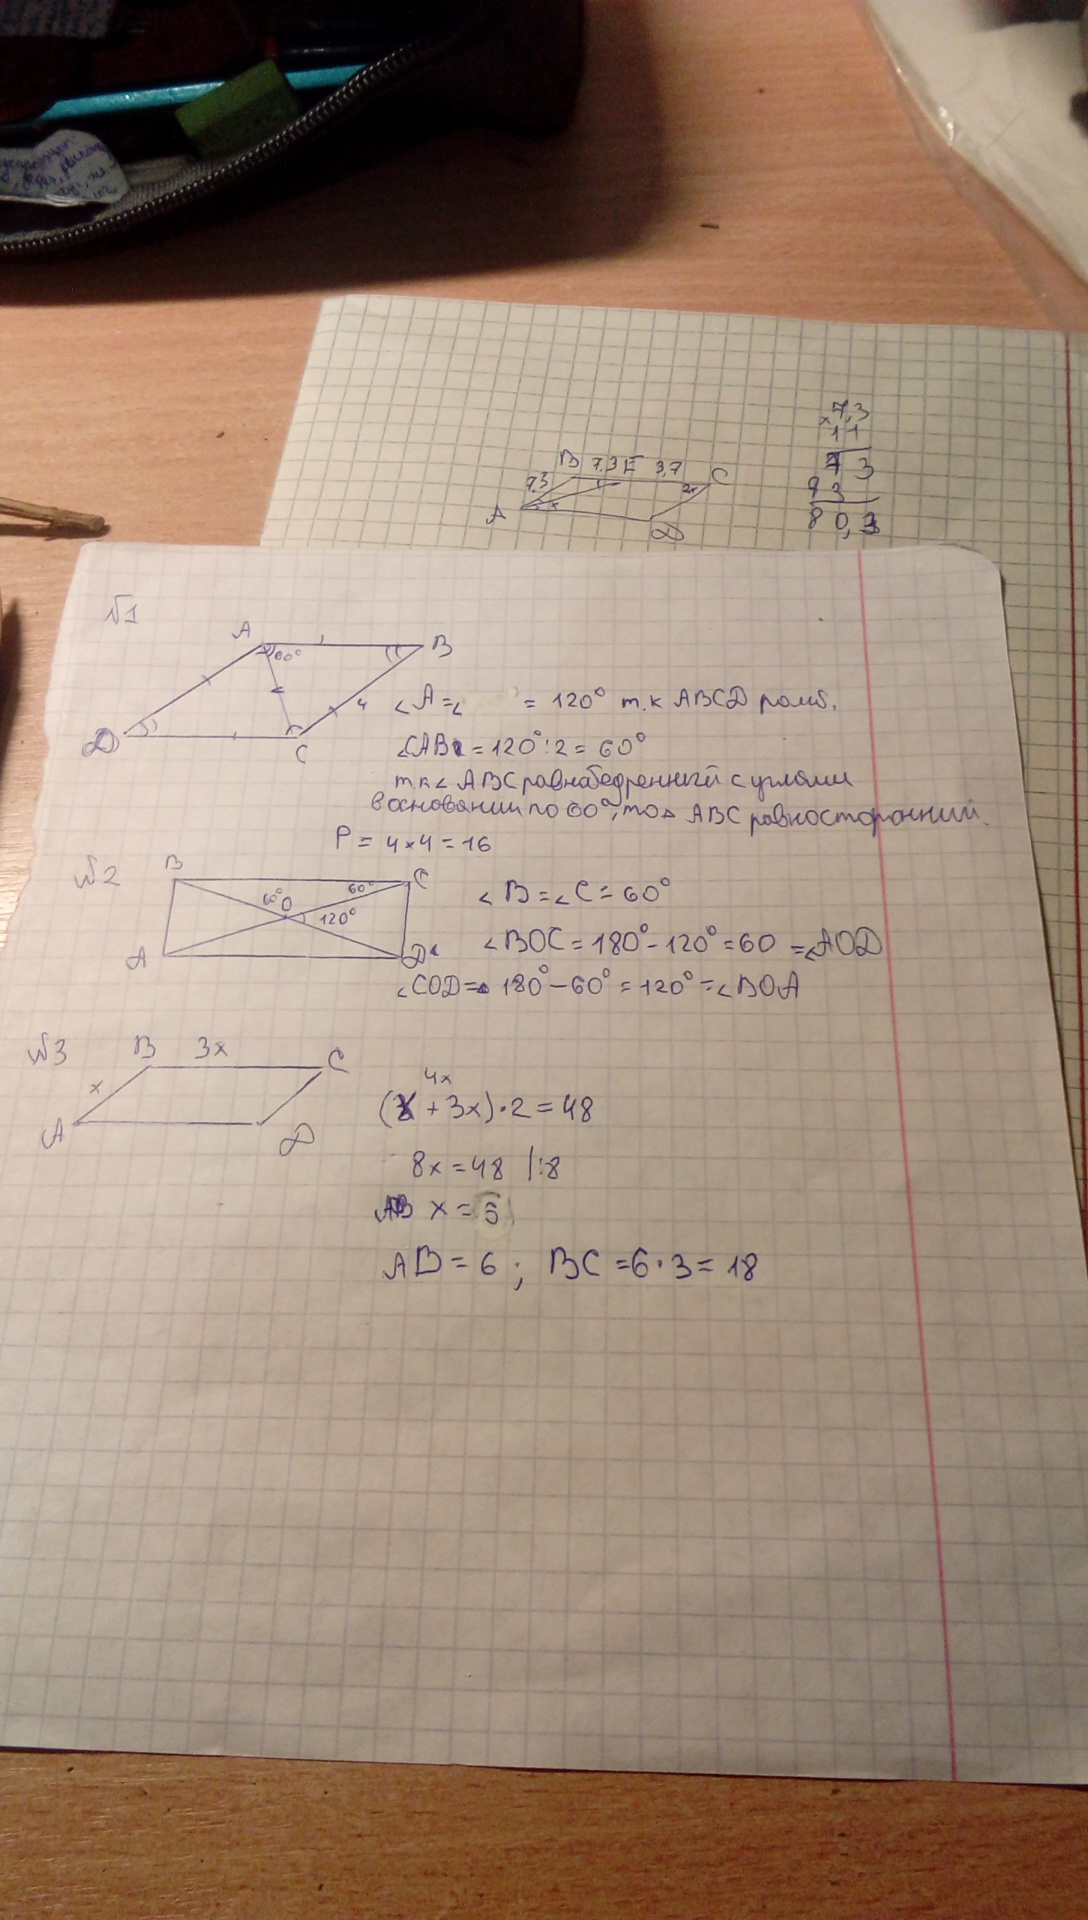 7,3
× 11
7 3
7 3
8 0,3
B 7,3 E 3,7 C
7,3
A
D
№1
A
60°
B
4
D
C
∠A=∠ = 120° т.к ABCD ромб.
∠CAB = 120°:2 = 60°
т.к ∠ ABC равнобедренный с углами
в основании по 60°, то △ ABC равносторонний.
P = 4×4=16
№2
B
60°
C
60° O
120°
A
D
∠B=∠C=60°
∠BOC = 180°-120°=60 =∠AOD
∠COD= 180°-60°=120°=∠BOA
№3
B 3x C
x
A
D
4x
( + 3x)·2=48
8x=48 |:8
x=
AB = 6 ; BC =6·3= 18